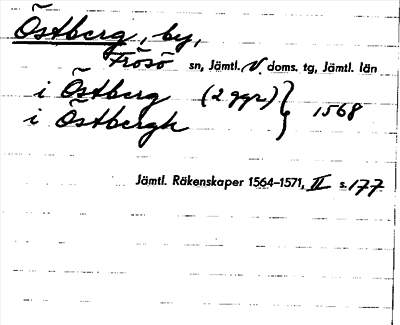 Östberg, by,
Frösö sn, Jämtl. V. doms. tg, Jämtl. län
i Östberg (2 ggr) } 1568
i Östbergh
Jämtl. Räkenskaper 1564-1571, II s. 177